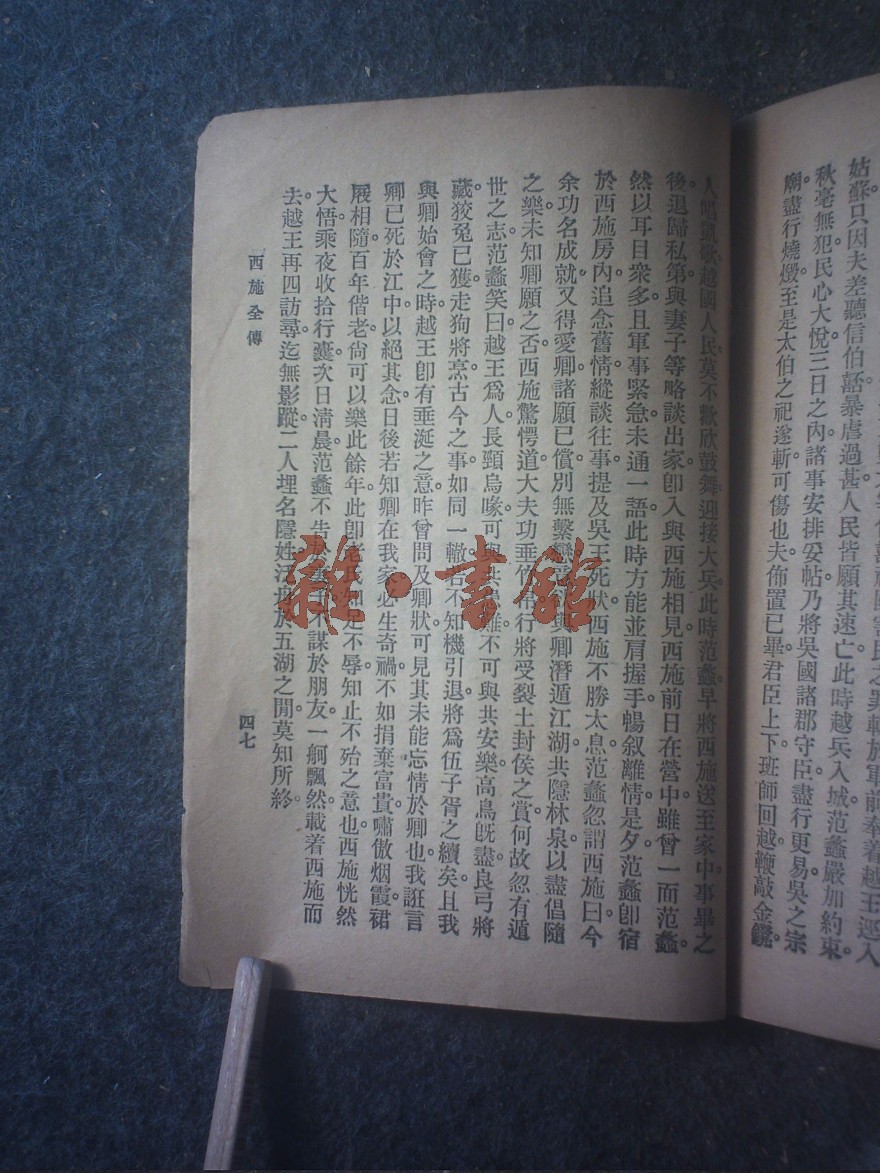 姑蘇只因夫差聽信伯嚭暴虐過甚人民皆願其速亡此時越兵入城范蠡嚴加約束
秋毫無犯民心大悅三日之內諸事安排妥帖乃將吳國諸郡守臣盡行更易吳之宗
廟盡行燒燬至是太伯之祀遂斬可傷也夫佈置已畢君臣上下班師回越鞭敲金鐙
人唱凱歌越國人民莫不歡欣鼓舞迎接大兵此時范蠡早將西施送至家中事畢之
後退歸私第與妻子等略談出家卽入與西施相見西施前日在營中雖曾一面范蠡
然以耳目衆多且軍事緊急未通一語此時方能並肩握手暢叙離情是夕范蠡卽宿
於西施房內追念舊情縱談往事提及吳王死狀西施不勝太息范蠡忽謂西施曰今
余功名成就又得愛卿諸願已償別無繫戀 與卿潛遁江湖共隱林泉以盡倡隨
之樂未知卿願之否西施驚愕道大夫功垂竹帛行將受裂土封侯之賞何故忽有遁
世之志范蠡笑曰越王爲人長頸烏喙可與共患難不可與共安樂高鳥旣盡良弓將
藏狡兔已獲走狗將烹古今之事如同一轍若不知機引退將爲伍子胥之續矣且我
與卿始會之時越王卽有垂涎之意昨曾問及卿狀可見其未能忘情於卿也我誑言
卿已死於江中以絕其念日後若知卿在我家必生奇禍不如捐棄富貴嘯傲烟霞裙
屐相隨百年偕老尙可以樂此餘年此卽老 知足不辱知止不殆之意也西施恍然
大悟乘夜收拾行囊次日淸晨范蠡不告於妻子不謀於朋友一舸飄然載着西施而
去越王再四訪尋迄無影蹤二人埋名隱姓 於五湖之閒莫知所終
西施全傳
四七
雜·書館